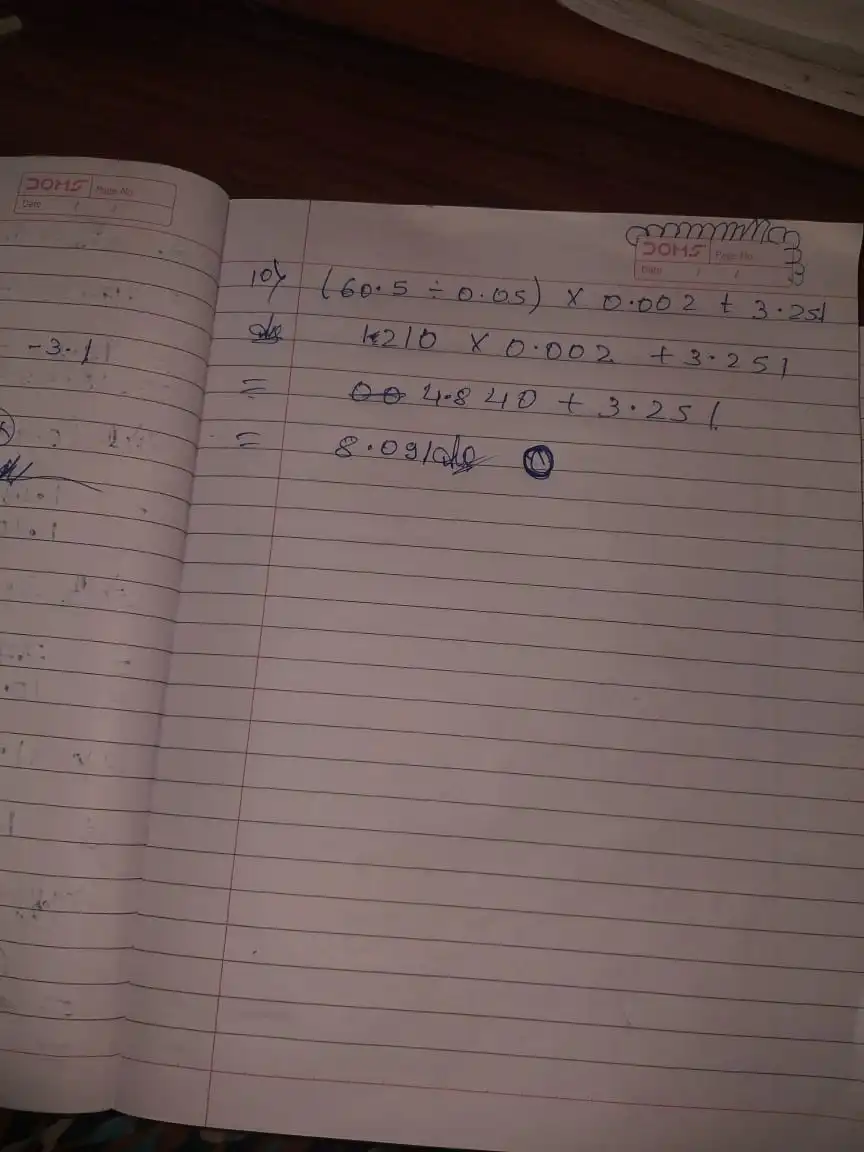 DOMS Page No.
Date / /
-3.1
DOMS Page No.
Date / /
10) (60.5 ÷ 0.05) × 0.002 + 3.251
1210 × 0.002 + 3.251
= 4.840 + 3.251
= 8.091